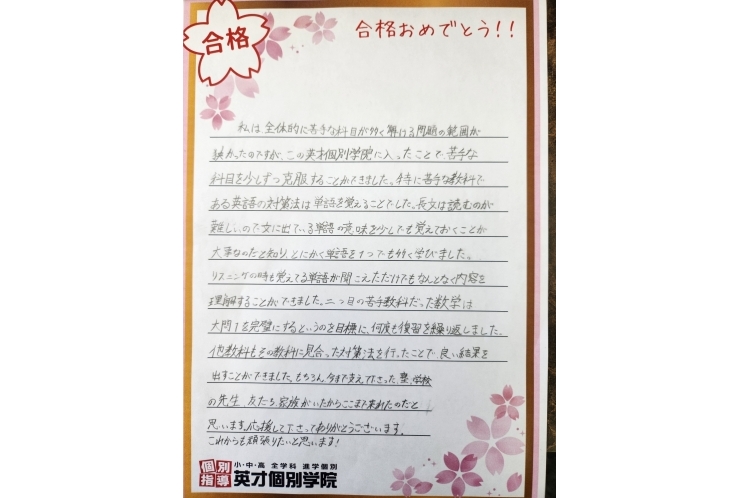 合格
合格おめでとう!!
私は、全体的に苦手な科目が多く解ける問題の範囲が
狭かったのですが、この英才個別学院に入ったことで、苦手な
科目を少しずつ克服することができました。特に苦手な教科で
ある英語の対策法は単語を覚えることでした。長文は読むのが
難しいので文に出ている単語の意味を少しでも覚えておくことが
大事なのだと知り、とにかく単語を1つでも多く学びました。
リスニングの時も覚えてる単語が聞こえただけでもなんとなく内容を
理解することができました。二つ目の苦手教科だった数学は
大問1を完璧にするというのを目標に、何度も復習を繰り返しました。
他教科もその教科に見合った対策法を行ったことで、良い結果を
出すことができました。もちろん、今まで支えて下さった、塾、学校
の先生、友だち、家族がいたからここまで来れたのだと
思います。応援して下さってありがとうございます。
これからも頑張りたいと思います!
個別指導
小・中・高 全学科 進学個別
英才個別学院